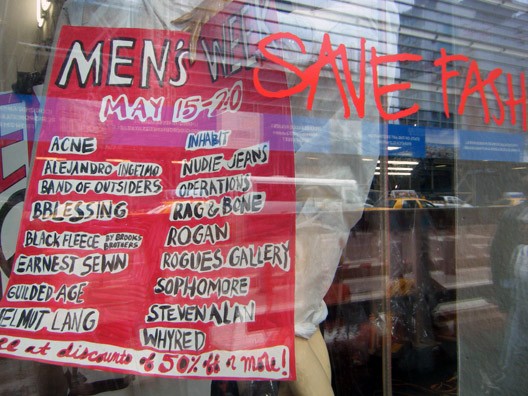 MEN'S WEEK
MAY 15-20
ACNE
ALEJANDRO INGELMO
BAND OF OUTSIDERS
BBLESSING
BLACK FLEECE BY BROOKS BROTHERS
EARNEST SEWN
GUILDED AGE
HELMUT LANG
INHABIT
NUDIE JEANS
OPERATIONS
RAG & BONE
ROGAN
ROGUES GALLERY
SOPHOMORE
STEVEN ALAN
WHYRED
at discounts of 50% off n more!
SAVE FASH